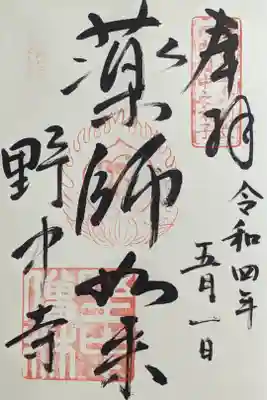 奉拝
令和四年
五月一日
薬師如来
野中寺